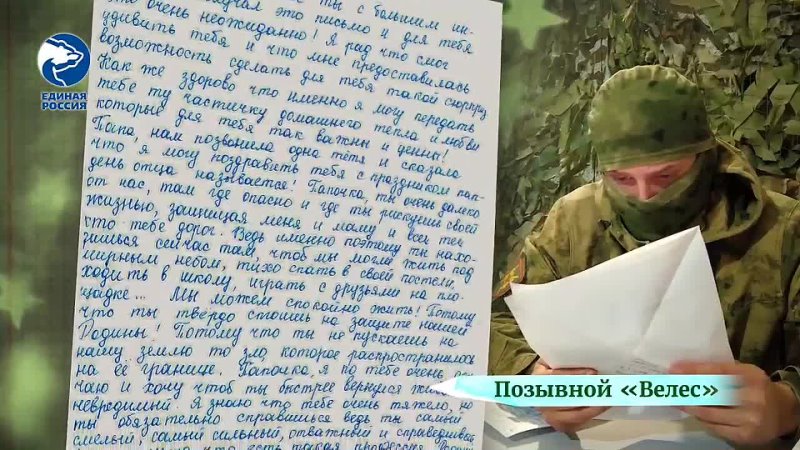 это очень неожиданно! Я рад что смог
удивить тебя и что мне предоставилась
возможность сделать для тебя такой сюрприз
Как же здорово что именно я могу передать
тебе ту частичку домашнего тепла и любви
которые для тебя так важны и ценны!
Папа, нам позвонила одна тётя и сказала
что я могу поздравить тебя с праздником пап-
день отца называется! Папочка, ты очень далеко
от нас, там где опасно и где ты рискуешь своей
жизнью, защищая меня и маму и всех тех
кто тебе дорог. Ведь именно поэтому ты нахо-
дишься сейчас там, чтоб мы могли жить под
мирным небом, тихо спать в своей постели,
ходить в школу, играть с друзьями на пло-
щадке... Мы можем спокойно жить! Потому
что ты твёрдо стоишь на защите нашей
Родины! Потому что ты не пускаешь на
нашу землю то зло, которое распространилось
на её границе. Папочка, я по тебе очень
чаю и хочу чтоб ты быстрее вернулся
невредимый. Я знаю что тебе очень тяжело, но
ты обязательно справишься ведь ты самый
смелый, самый сильный, отважный и справедливый
ЕДИНАЯ
РОССИЯ
Позывной «Велес»